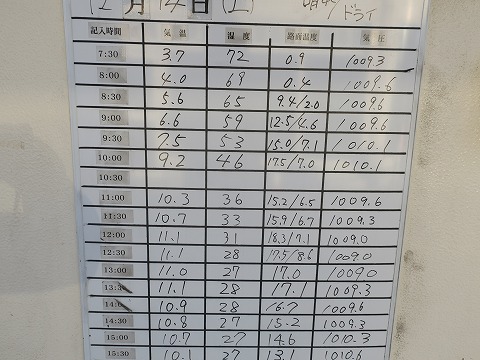 12月14日(土) 晴れ/ドライ
記入時間 気温 湿度 路面温度 気圧
7:30 3.7 72 0.9 1009.3
8:00 4.0 69 0.4 1009.6
8:30 5.6 65 9.4/2.0 1009.6
9:00 6.6 59 12.5/4.6 1009.6
9:30 7.5 53 15.0/7.1 1010.1
10:00 9.2 46 17.5/7.0 1010.1
10:30
11:00 10.3 36 15.2/6.5 1009.6
11:30 10.7 33 15.9/6.7 1009.3
12:00 11.1 31 18.3/7.1 1009.0
12:30 11.1 28 17.5/8.6 1009.0
13:00 11.0 27 17.0 1009.0
13:30 11.1 28 17.1 1009.3
14:00 10.9 28 16.7 1009.6
14:30 10.8 27 15.2 1009.3
15:00 10.7 27 14.6 1010.3
15:30 10.1 27 13.1 1010.6